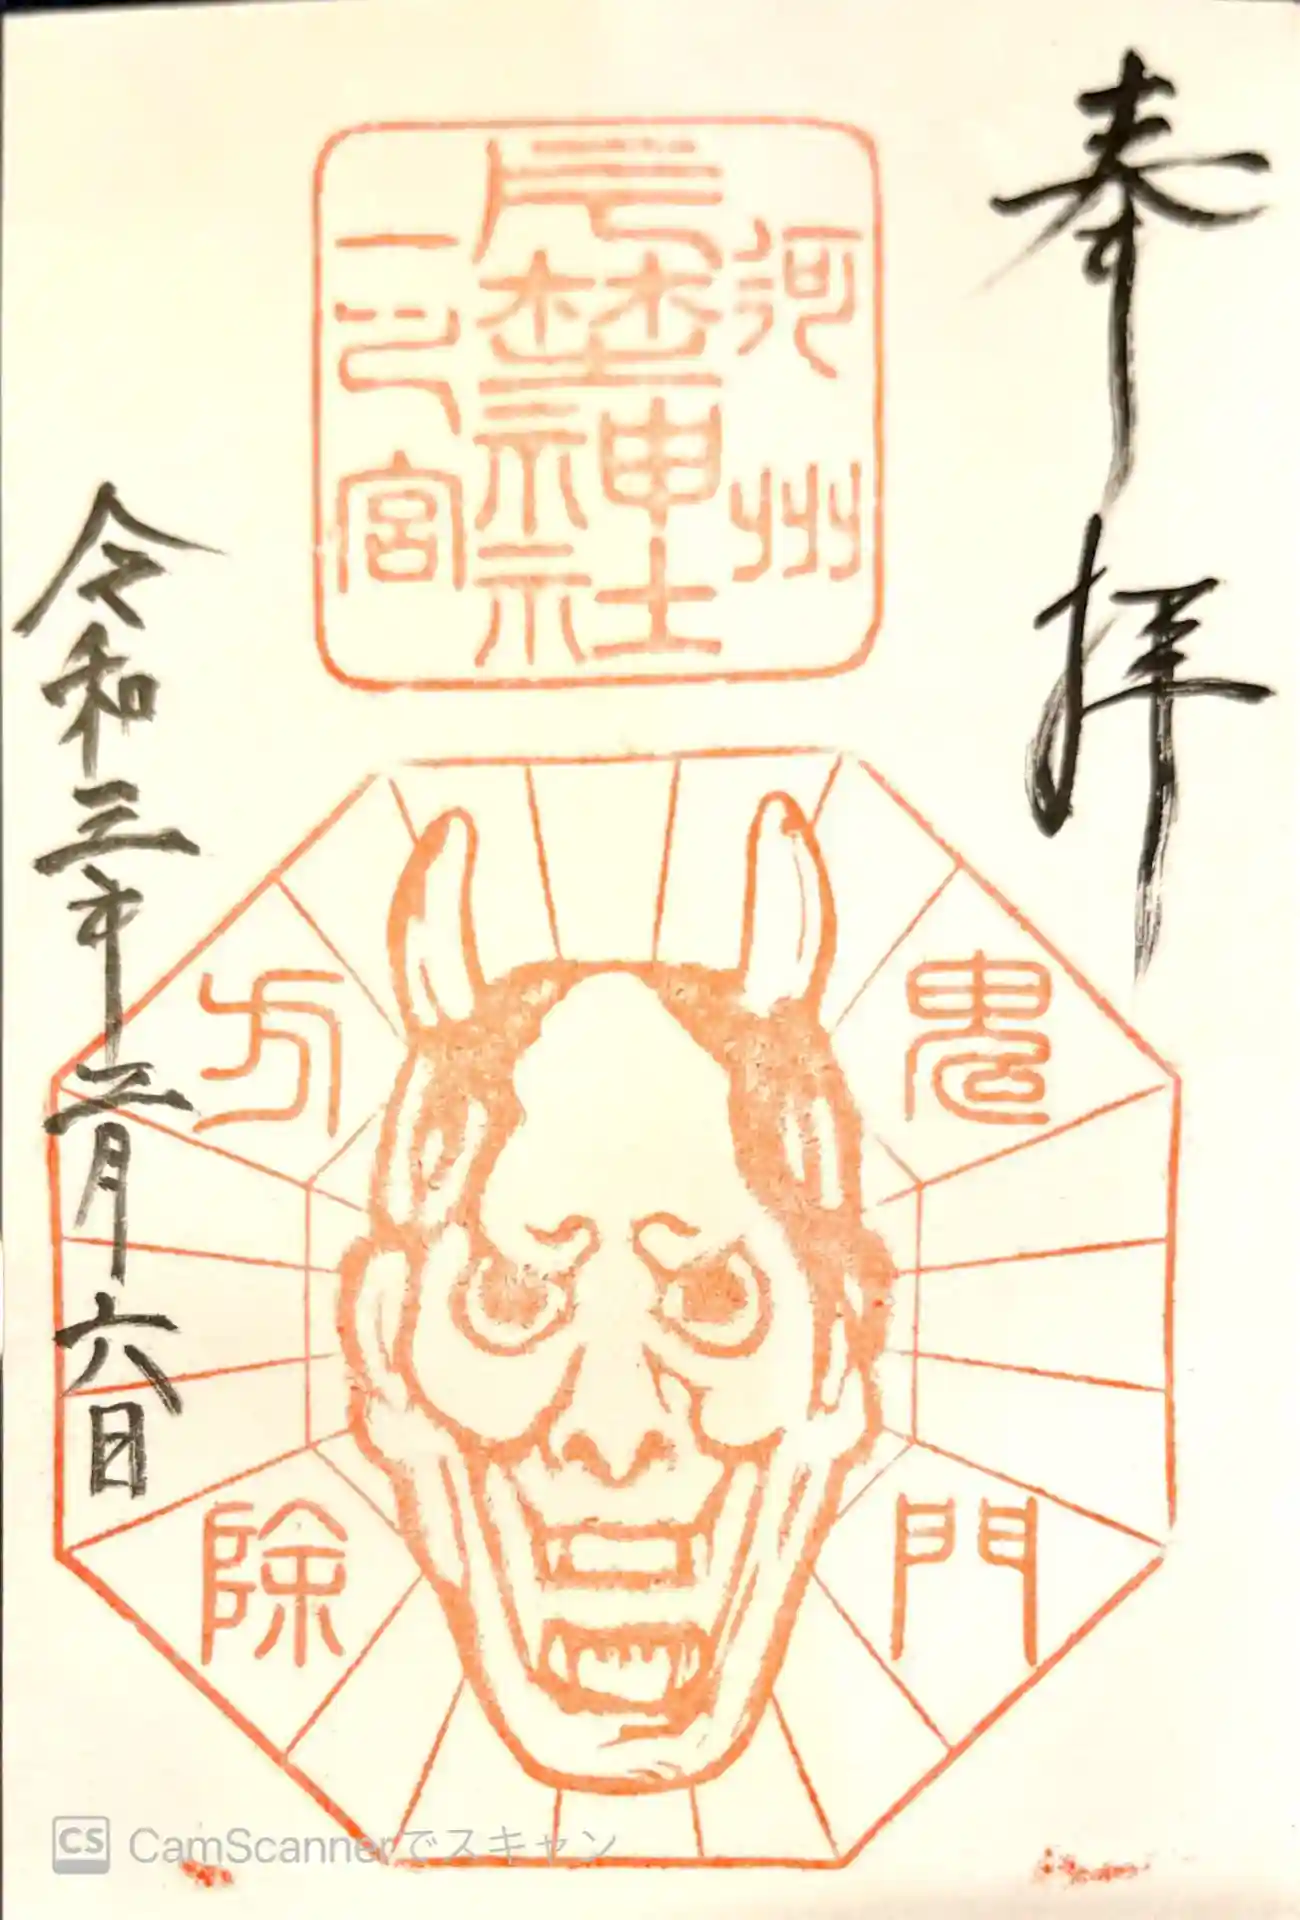 奉拝
河州
片埜神社
一之宮
鬼門
方除
令和三年三月六日
CamScannerでスキャン